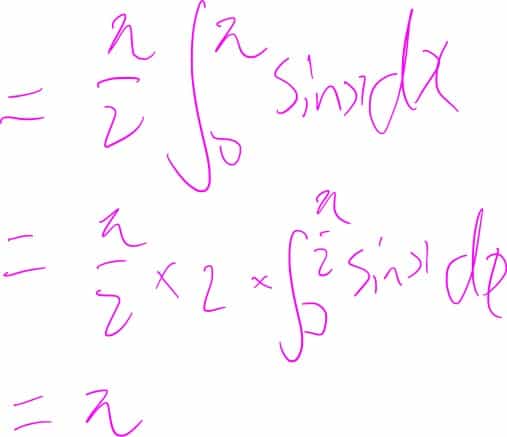 = π/2 ∫₀^π sinx dx
= π/2 × 2 × ∫₀^(π/2) sinx dx
= π